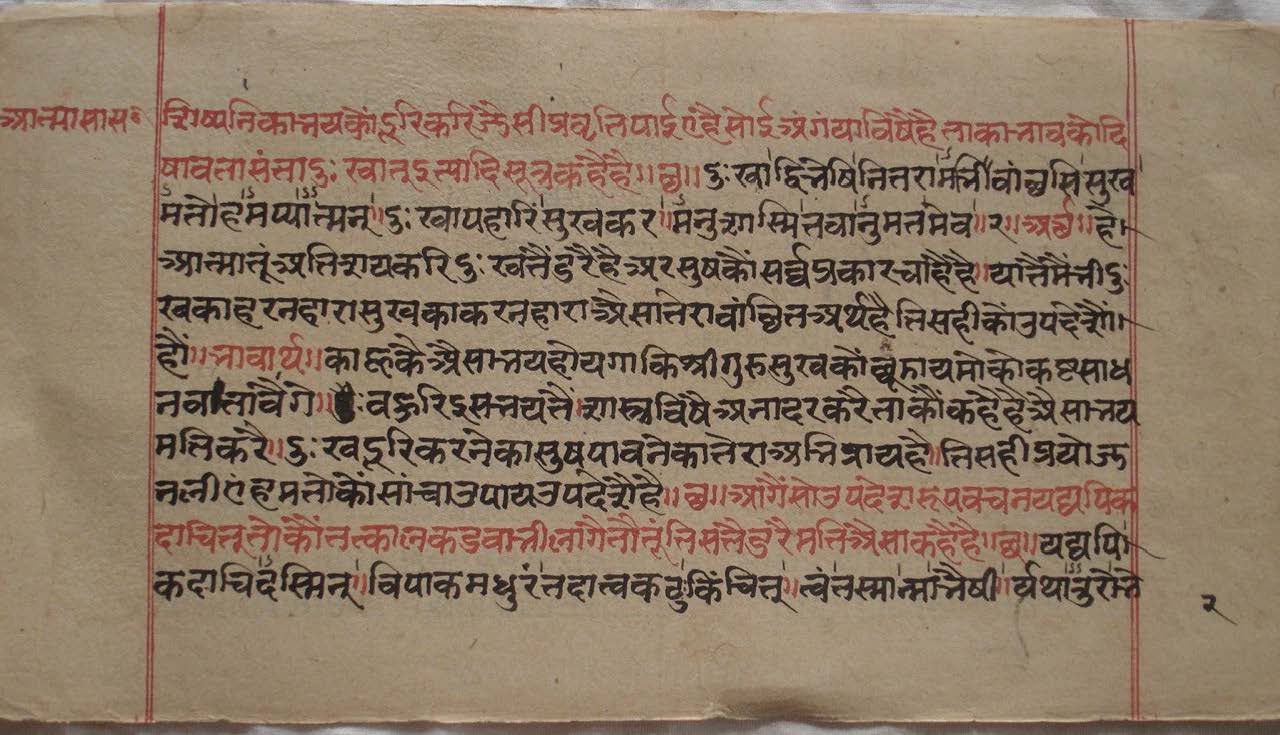 आत्मासास॰ शिष्यनिका भयकौं दूरि करि जैसी प्रवृत्ति पाईए है सोई अंग या विषै है ताका भाव कौं दि
षावता संता दुःखात् इत्यादि सूत्र कहै है ॥ छ ॥ दुःखाद्विभेषि नितरामभिवांछसि सुख
मतोहमप्यात्मन् ॥ दुःखापहारि सुखकरमनुशास्मि तवानुमतमेव ॥ २ ॥ अर्थ ॥ है
आत्मा तूं अतिशयकरि दुःखतैं डरै है अर सुषकौं सर्व्वप्रकार चाहै है ॥ यातैं मैं भी दुः
खका हरनहारा सुखका करनहारा अैसा तेरा वांछित अर्थ है तिसहीकौं उपदेशौं
हौं ॥ भावार्थ ॥ काहूकै अैसा भय होयगा कि श्रीगुरु सुखकौं छुडाय मोकौं कष्ट साध
न बतावैंगे ॥ बहुरि इस भयतैं शास्त्र विषै अनादर करै ताकौं कहै है अैसा भय
मति करै ॥ दुःख दूरि करनेका सुष पावनेका तेरा अभिप्राय है ॥ तिसही प्रयोज
न लीए हम तोकौं सांचा उपाय उपदेशै है ॥ छ ॥ आगैं सो उपदेशरूप वचन यद्यपि क
दाचित् तोकौं तत्काल कडवा भी लागै तौ तूं तिसतैं डरै मति अैसा कहै है ॥ छ ॥ यद्यपि
कदाचिदस्मिन् ॥ विपाकमधुरं तदात्वकटु किंचित् ॥ त्वं तस्मान्माभैषी र्यथातुरो भे
२